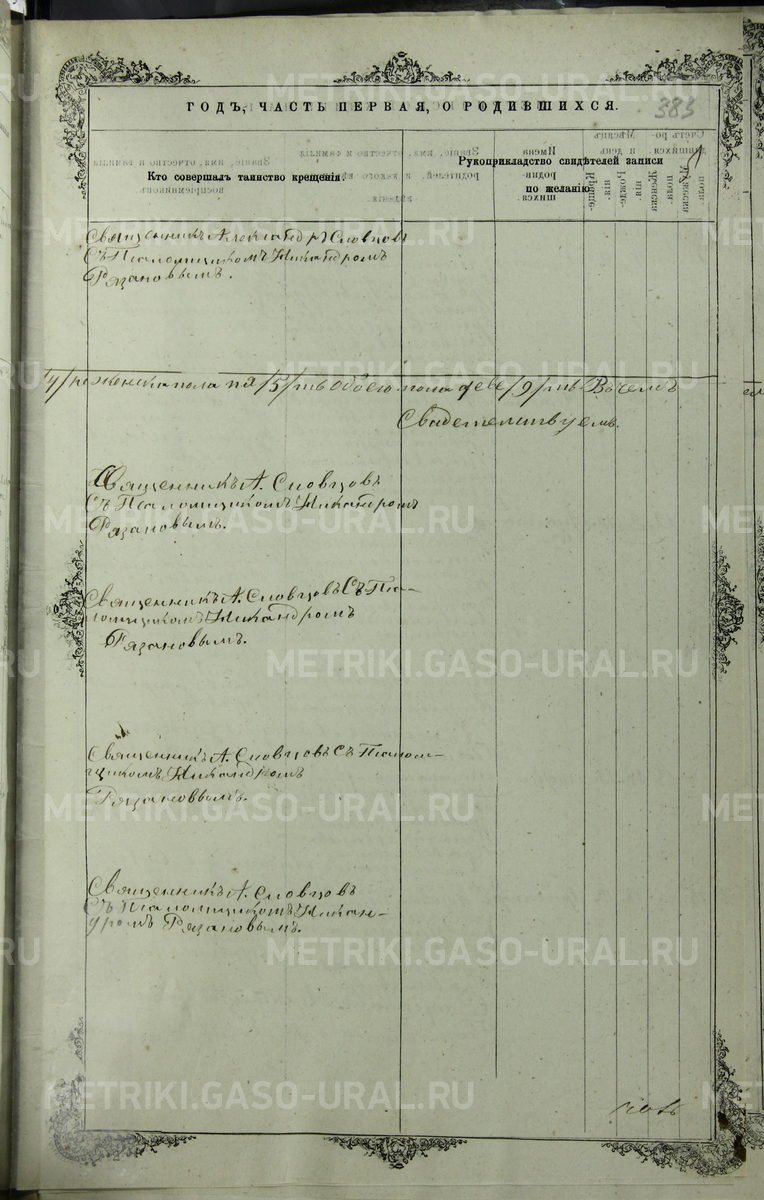 ГОДЪ, ЧАСТЬ ПЕРВАЯ, О РОДИВШИХСЯ.
383
Кто совершалъ таинство крещенія.
Рукоприкладство свидѣтелей записи
по желанію.
Священникъ Александръ Словцовъ
Съ Псаломщикомъ Никандромъ
Рязановымъ.
/4/ женска пола пять /5/ обоего пола девять /9/ Въ чемъ
Свидетельствуемъ.
Священникъ А. Словцовъ
Съ Псаломщикомъ Никандромъ
Рязановымъ.
Священникъ А. Словцовъ Съ Пса-
ломщикомъ Никандромъ
Рязановымъ.
Священникъ А. Словцовъ Съ Псалом-
щикомъ Никандромъ
Рязановымъ.
Священникъ А. Словцовъ
Съ Псаломщикомъ Никан-
дромъ Рязановымъ.
METRIKI.GASO-URAL.RU